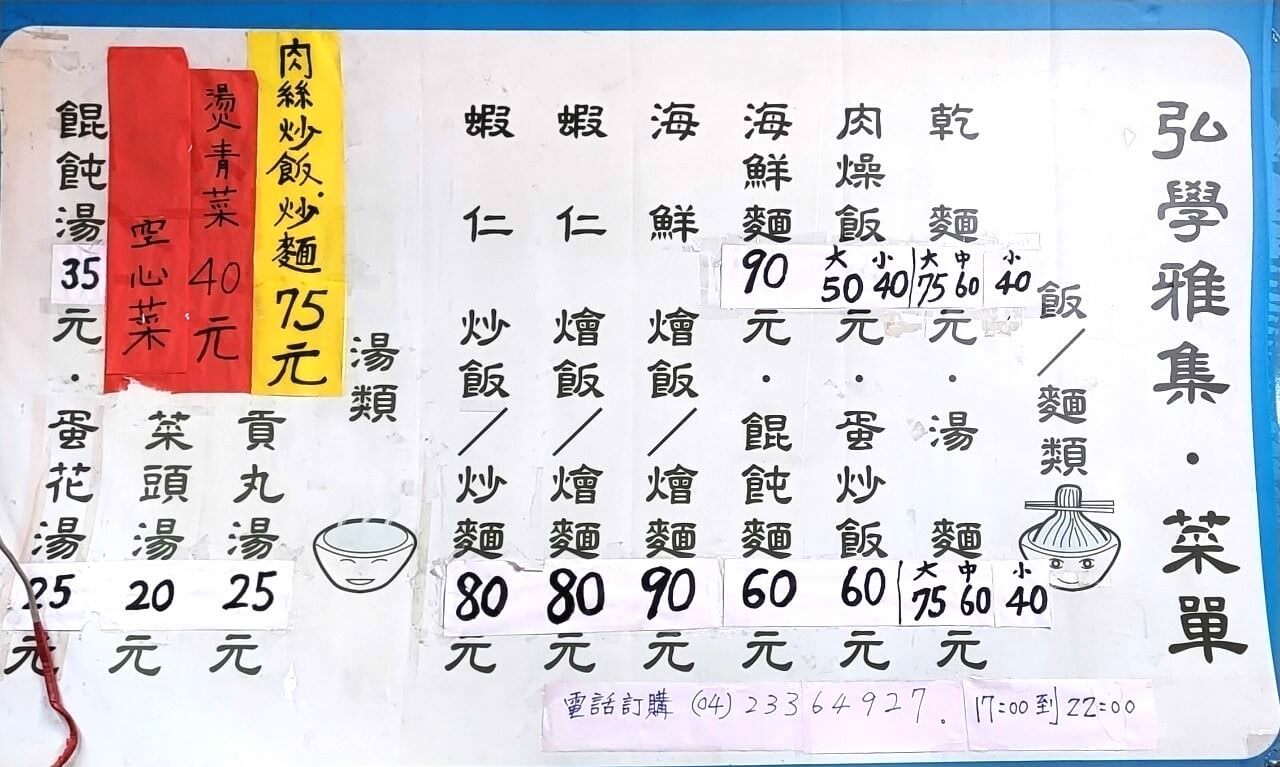 弘學雅集·菜單
飯／麵類
乾麵 大75 中60 小40元·湯麵 大75 中60 小40元
肉燥飯 大50 小40元·蛋炒飯60元
海鮮麵90元·餛飩麵60元
海鮮燴飯／燴麵90元
蝦仁燴飯／燴麵80元
蝦仁炒飯／炒麵80元
湯類
肉絲炒飯.炒麵75元
燙青菜40元
空心菜
貢丸湯25元
菜頭湯20元
餛飩湯35元·蛋花湯25元
電話訂購 (04)23364927. 17:00到22:00